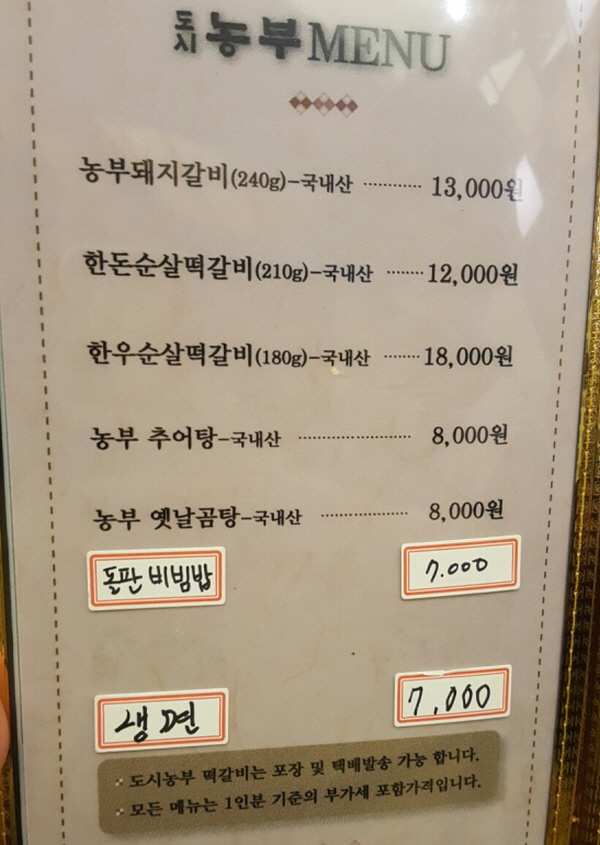 도시 농부 MENU
농부돼지갈비(240g)-국내산 ············ 13,000원
한돈순살떡갈비(210g)-국내산 ········ 12,000원
한우순살떡갈비(180g)-국내산 ········ 18,000원
농부 추어탕-국내산 ······················· 8,000원
농부 옛날곰탕-국내산 ·················· 8,000원
돌판비빔밥 7.000
생면 7,000
도시농부 떡갈비는 포장 및 택배발송 가능 합니다.
모든 메뉴는 1인분 기준의 부가세 포함가격입니다.